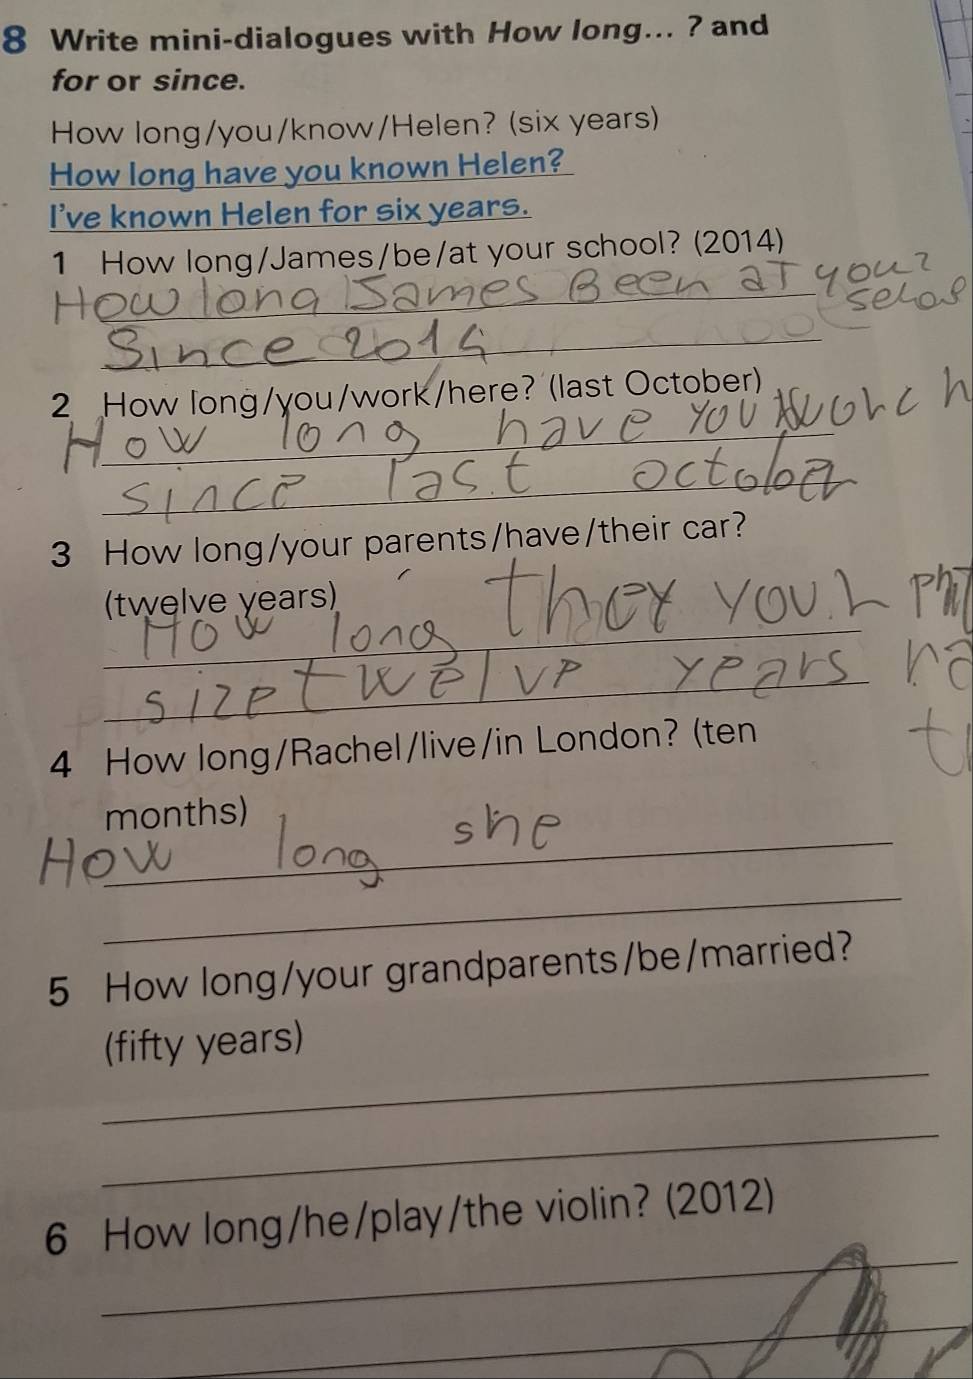 8 Write mini-dialogues with How long... ? and
for or since.
How long/you/know/Helen? (six years)
How long have you known Helen?
I've known Helen for six years.
1 How long/James/be/at your school? (2014)
How long James Been at you?
Since 2014
2 How long/you/work/here? (last October)
How long have you
since last october
3 How long/your parents/have/their car?
(twelve years)
How long they
twelve years
4 How long/Rachel/live/in London? (ten
months)
How long she
5 How long/your grandparents/be/married?
(fifty years)
6 How long/he/play/the violin? (2012)